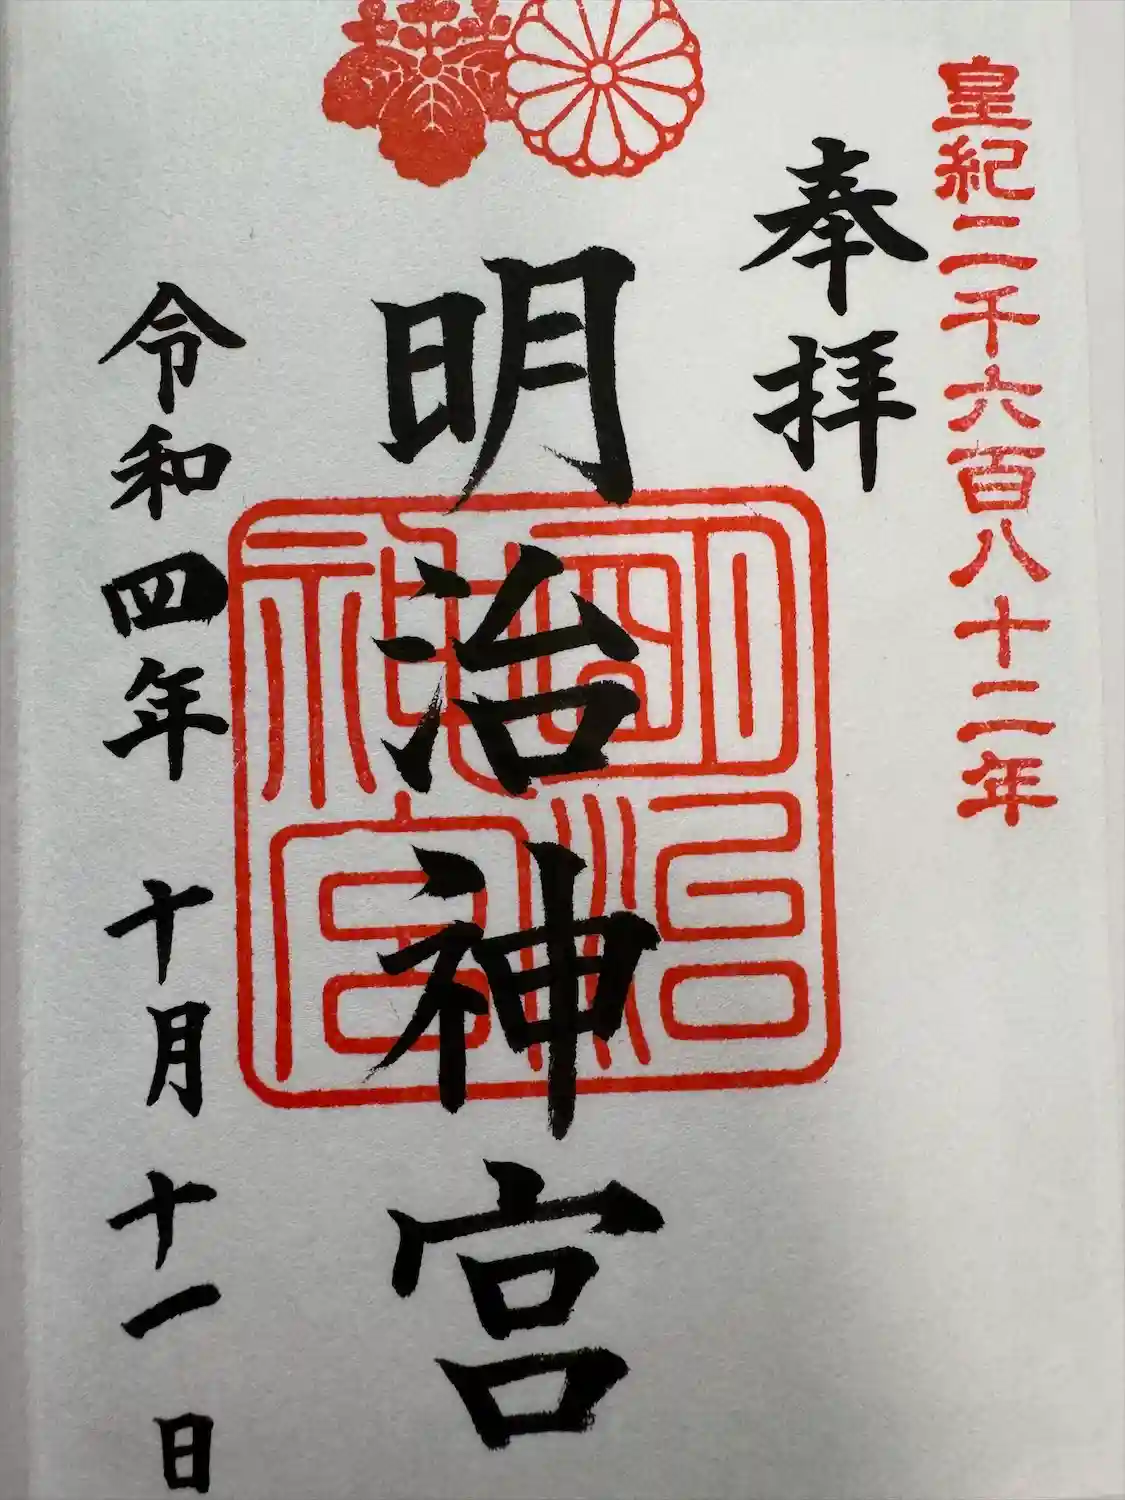 皇紀二千六百八十二年
奉拝
明治神宮
明治神宮
令和四年 十月十一日